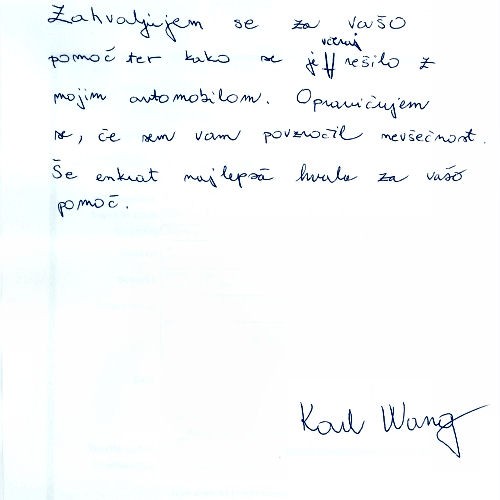 Zahvaljujem se za vašo
pomoč ter kako se je včeraj rešilo z
mojim avtomobilom. Opravičujem
se, če sem vam povzročil nevšečnost.
Še enkrat najlepša hvala za vašo
pomoč.
Karl Wang